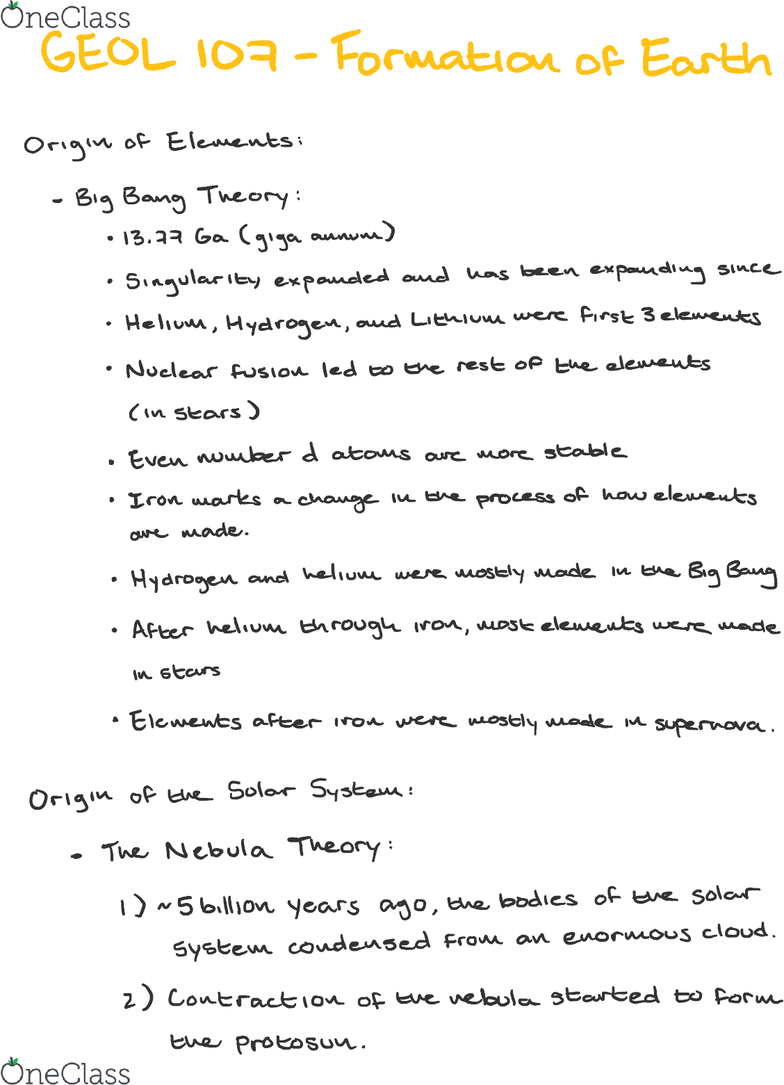 OneClass
GEOL 107 - Formation of Earth
Origin of Elements:
- Big Bang Theory:
• 13.77 Ga (giga annum)
• Singularity expanded and has been expanding since
• Helium, Hydrogen, and Lithium were first 3 elements
• Nuclear fusion led to the rest of the elements
(in stars)
• Even number d atoms are more stable
• Iron marks a change in the process of how elements
are made.
• Hydrogen and helium were mostly made in the Big Bang
• After helium through iron, most elements were made
in stars
• Elements after iron were mostly made in supernova.
Origin of the Solar System:
• The Nebula Theory:
1) ~5 billion years ago, the bodies of the solar
system condensed from an enormous cloud.
2) Contraction of the nebula started to form
the protosun.
OneClass